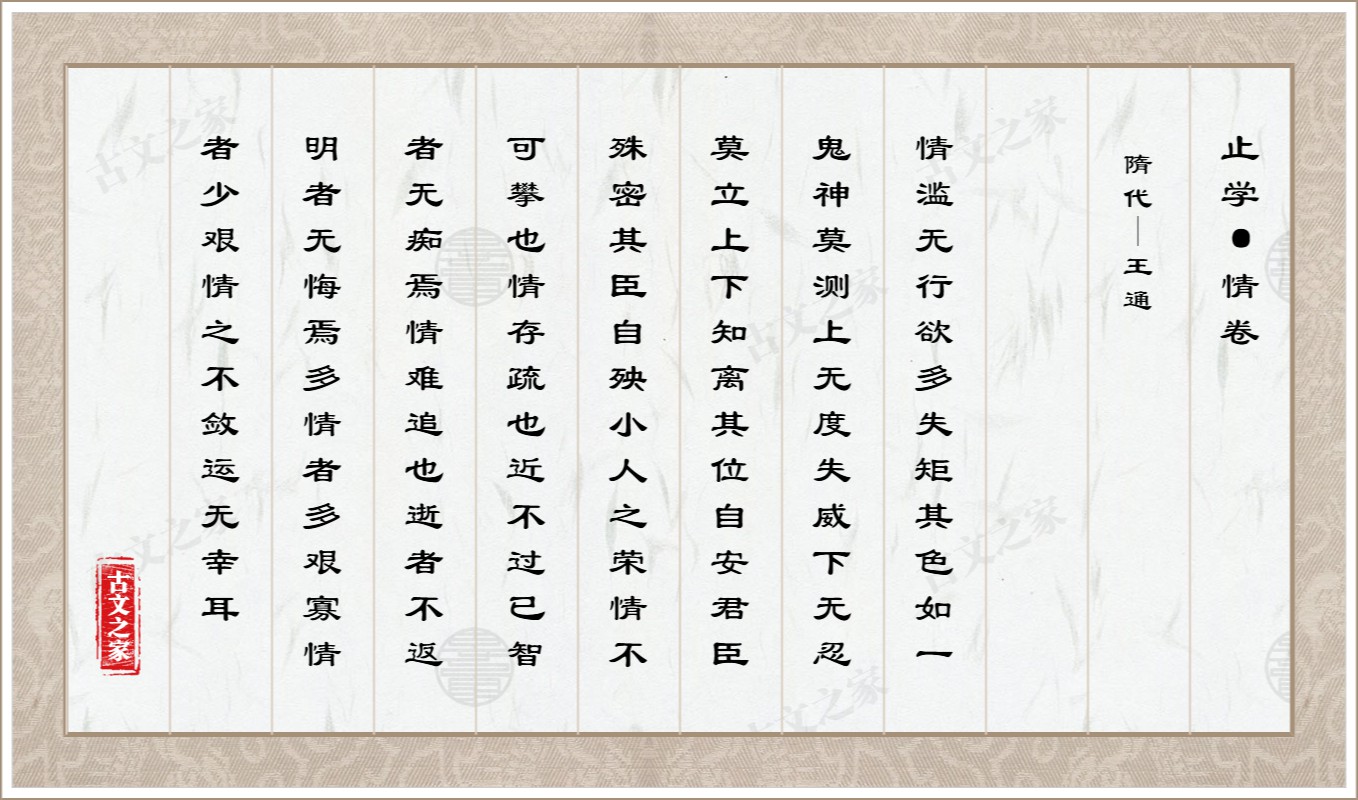 止学●情卷
隋代—王通
情滥无行欲多失矩其色如一
鬼神莫测上无度失威下无忍
莫立上下知离其位自安君臣
殊密其臣自殃小人之荣情不
可攀也情存疏也近不过己智
者无痴焉情难追也逝者不返
明者无悔焉多情者多艰寡情
者少艰情之不敛运无幸耳
古文之家